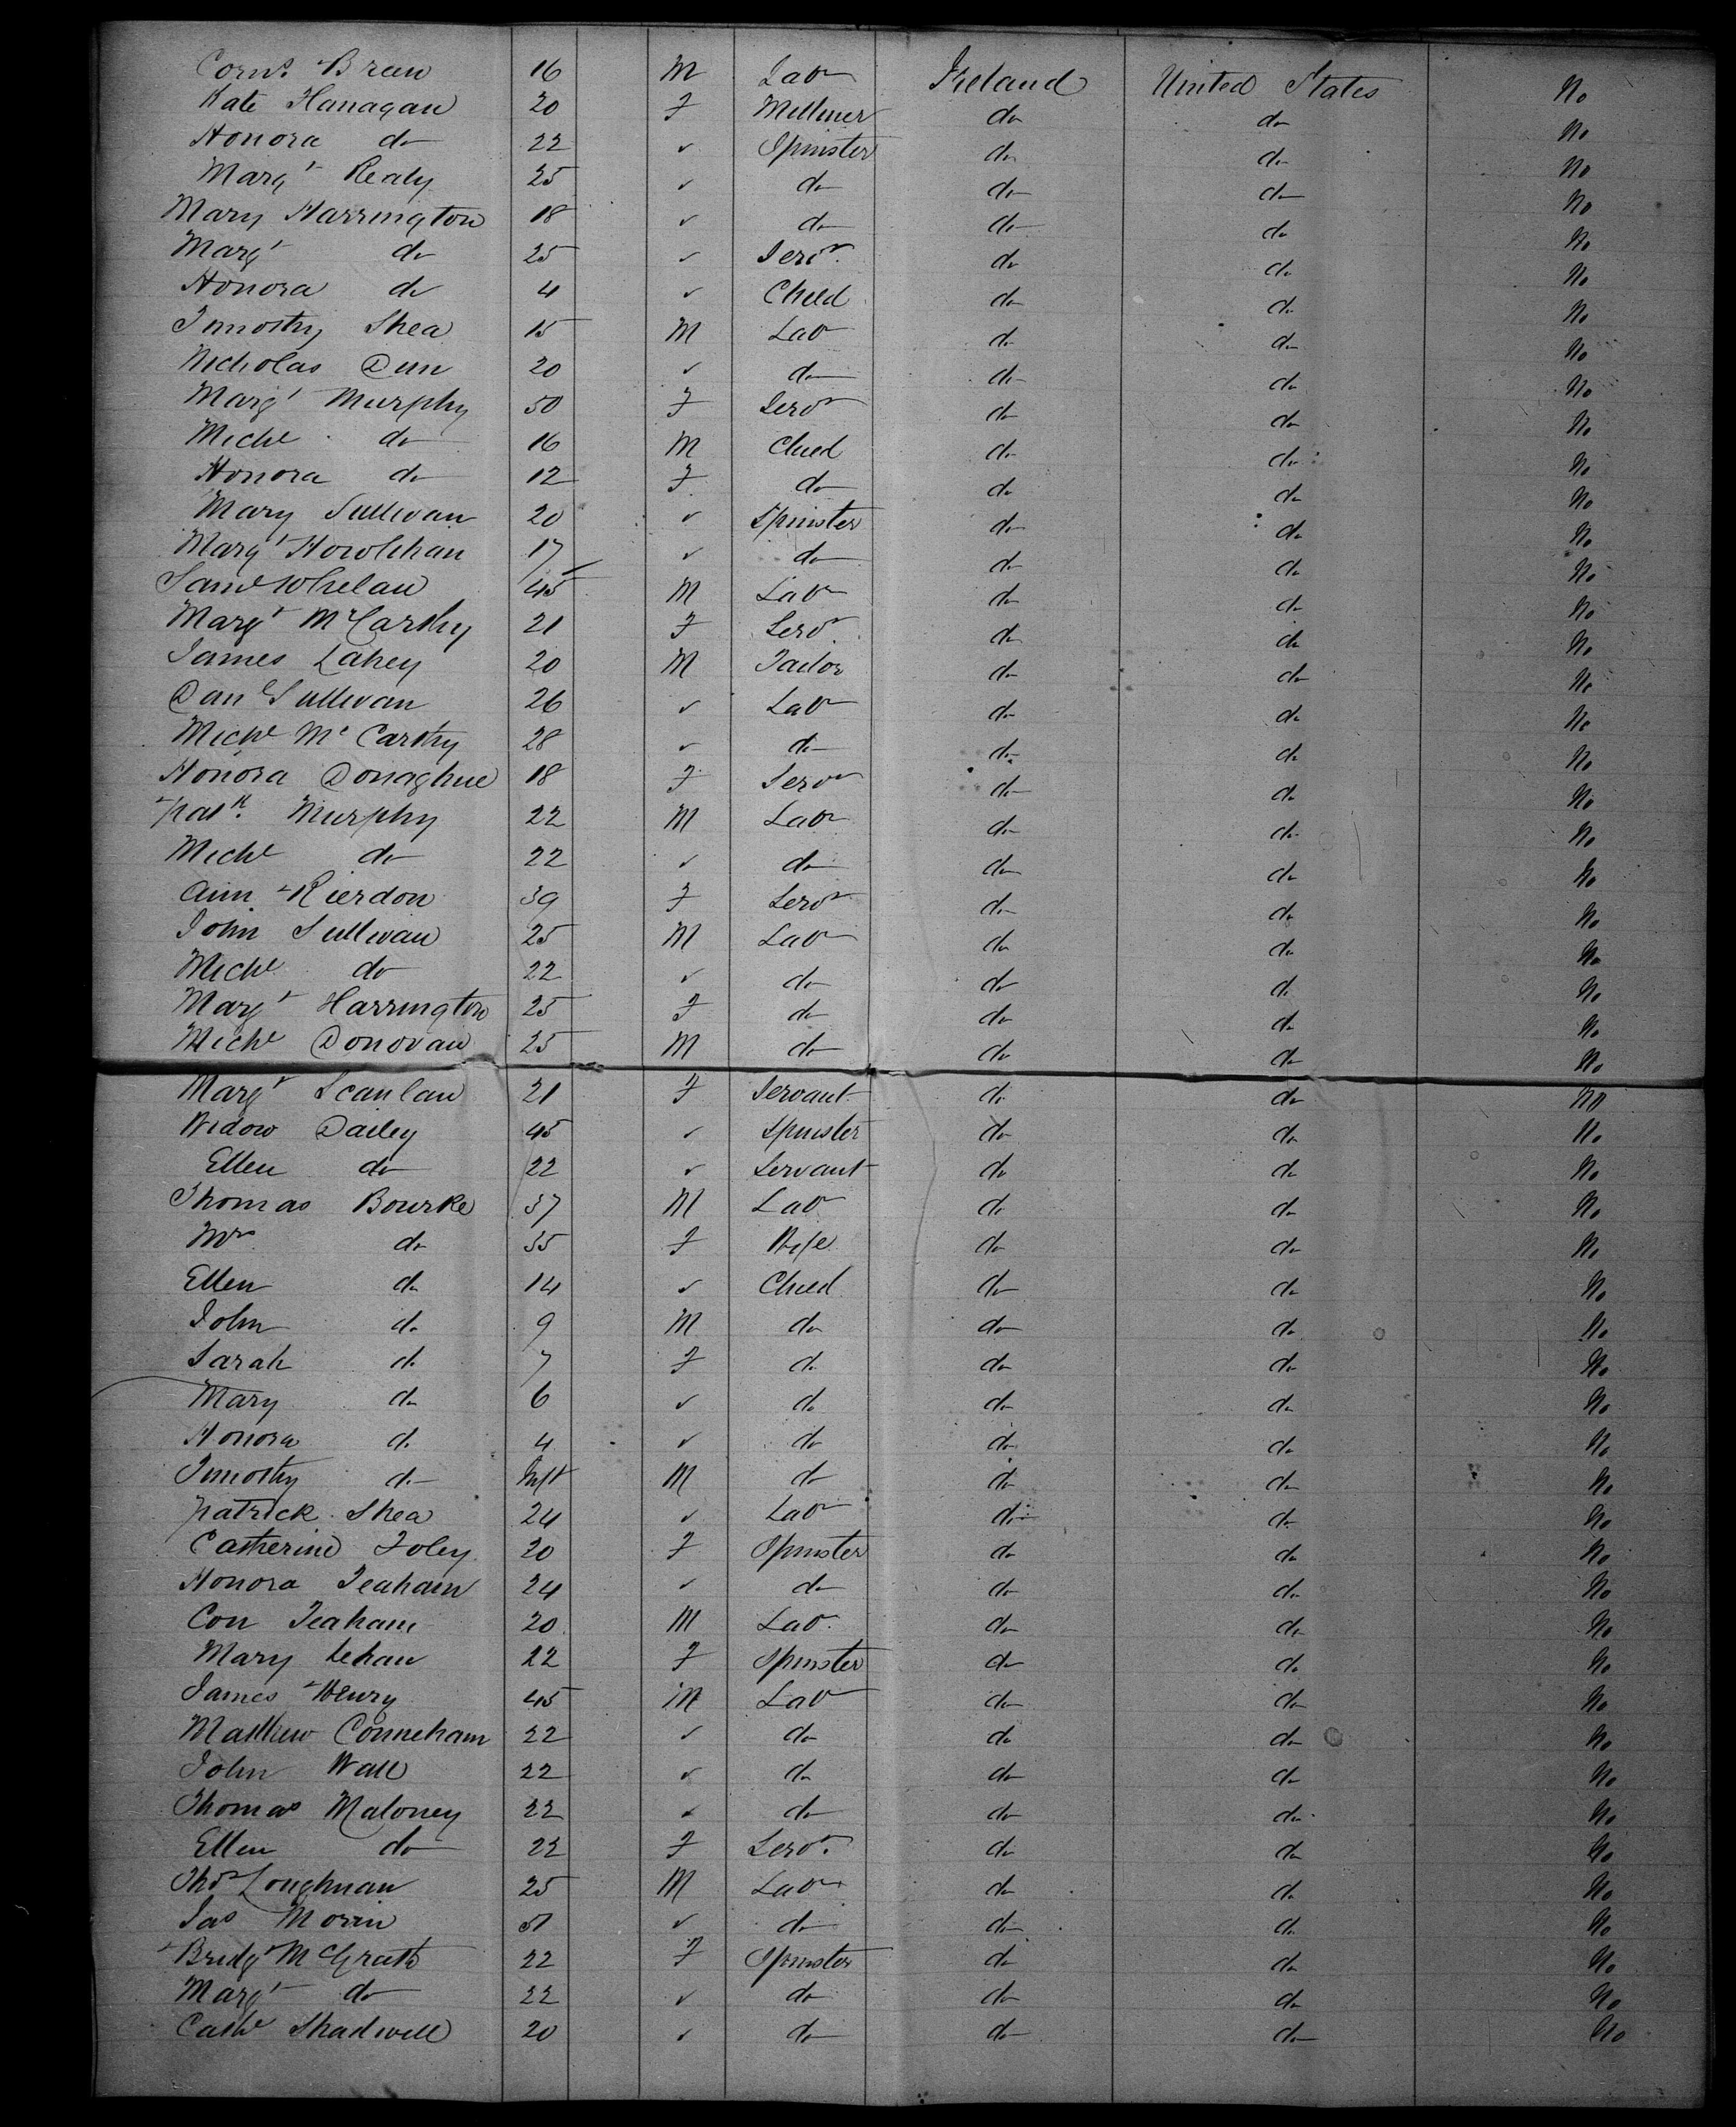 Corns. Breen 16 M Labr Ireland United States No
Kate Flanagan 20 F Milliner do do No
Honora do 22 ✓ Spinster do do No
Margt Realy 25 ✓ do do do No
Mary Harrington 18 ✓ do do do No
Margt do 25 ✓ Servt. do do No
Honora do 4 ✓ Child do do No
Timothy Shea 15 M Labr do do No
Nicholas Dun 20 ✓ do do do No
Margt Murphy 50 F Servt do do No
Michl do 16 M Child do do No
Honora do 12 F do do do No
Mary Sullivan 20 ✓ Spinster do do No
Margt Howlihan 17 ✓ do do do No
Saml Whelan 45 M Labr do do No
Margt McCarthy 21 F Servt. do do No
James Lahey 20 M Tailor do do No
Danl Sullivan 26 ✓ Labr do do No
Michl McCarthy 28 ✓ do do do No
Honora Donaghue 18 F Servt do do No
Patk. Murphy 22 M Labr do do No
Michl do 22 ✓ do do do No
Ann Rierdon 39 F Servt do do No
John Sullivan 25 M Labr do do No
Michl do 22 ✓ do do do No
Margt Harrington 25 F do do do No
Michl Donovan 25 M do do do No
Margt Scanlan 21 F Servant do do No
Widow Dailey 45 ✓ Spinster do do No
Ellen do 22 ✓ Servant do do No
Thomas Bourke 37 M Labr do do No
Mrs do 35 F Wife do do No
Ellen do 14 ✓ Child do do No
John do 9 M do do do No
Sarah do 7 F do do do No
Mary do 6 ✓ do do do No
Honora do 4 ✓ do do do No
Timothy do Inft M do do do No
Patrick Shea 24 ✓ Labr do do No
Catherine Foley 20 F Spinster do do No
Honora Teaham 24 ✓ do do do No
Con Teaham 20 M Labr. do do No
Mary Lehan 22 F Spinster do do No
James Henry 45 M Labr do do No
Matthew Conneham 22 ✓ do do do No
John Wall 22 ✓ do do do No
Thomas Maloney 22 ✓ do do do No
Ellen do 22 F Servt. do do No
Thos Loughnan 25 M Labr do do No
Jas Morin ✓ do do do No
Bridgt McGrath 22 F Spinster do do No
Margt do 22 ✓ do do do No
Cathe Shadwell 20 ✓ do do do No